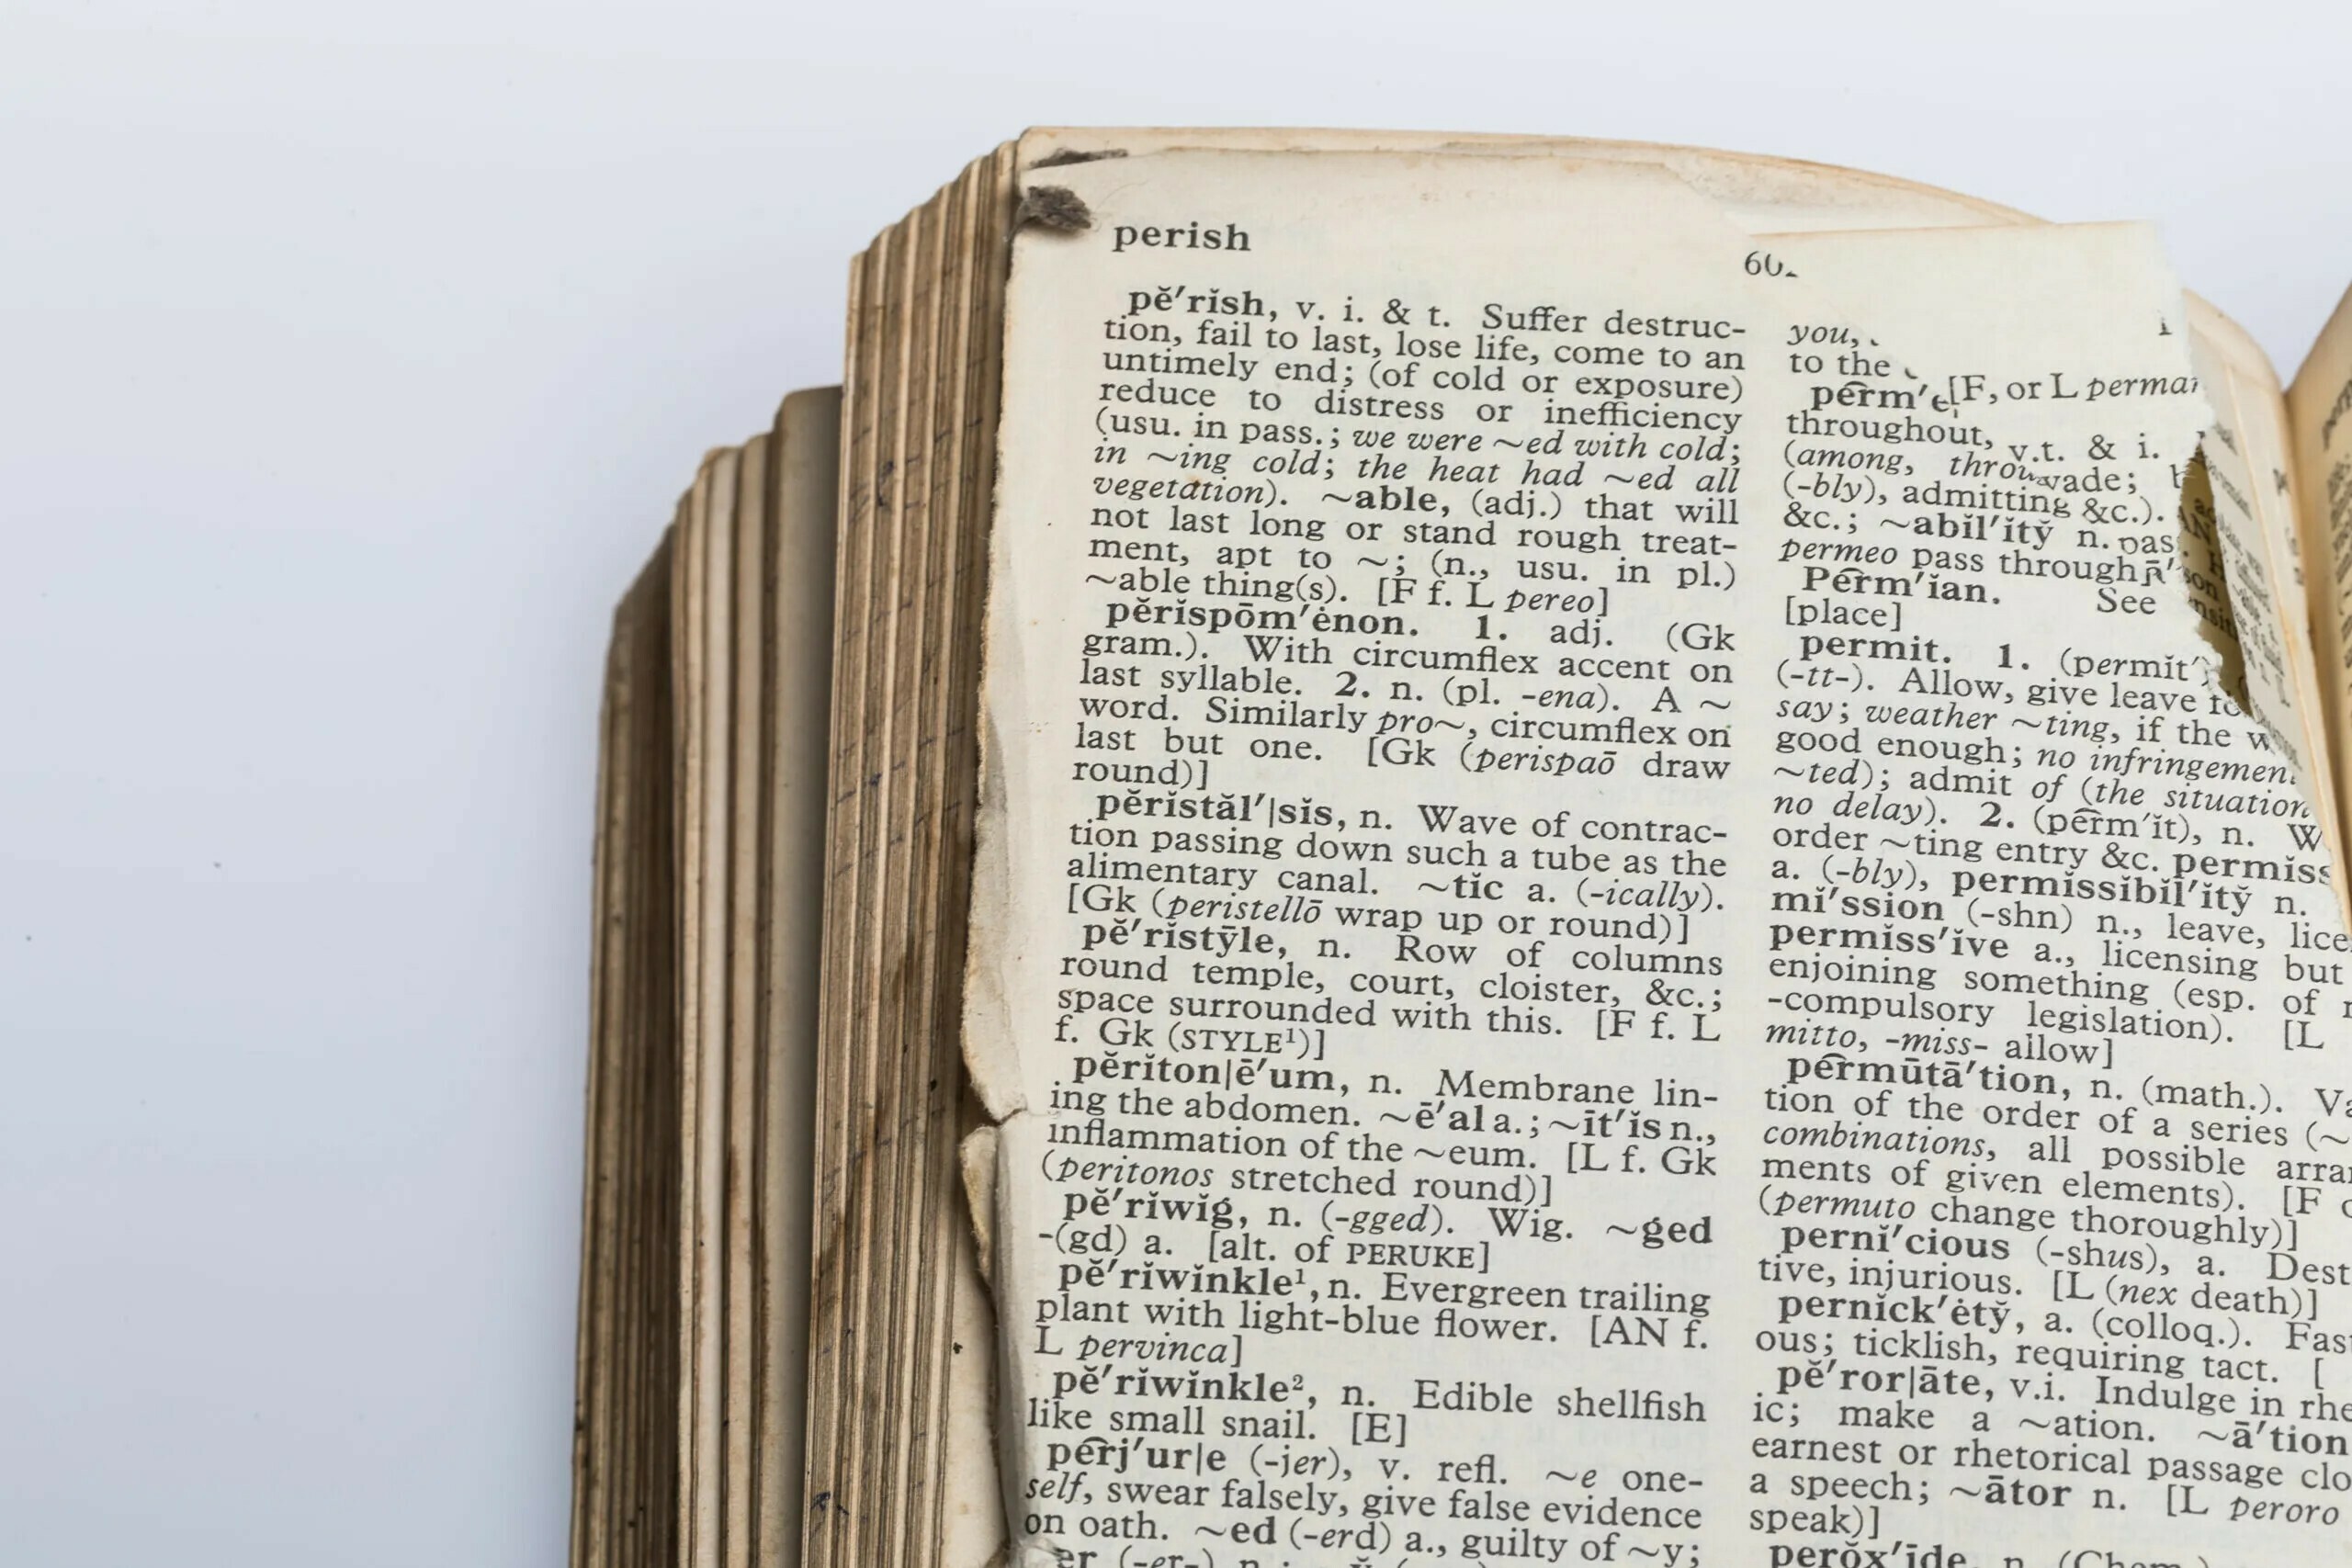 perish
pĕ′rĭsh, v. i. & t. Suffer destruc-
tion, fail to last, lose life, come to an
untimely end; (of cold or exposure)
reduce to distress or inefficiency
(usu. in pass.; we were ~ed with cold;
in ~ing cold; the heat had ~ed all
vegetation). ~able, (adj.) that will
not last long or stand rough treat-
ment, apt to ~; (n., usu. in pl.)
~able thing(s). [F f. L pereo]
pĕrĭspōm′ėnon. 1. adj. (Gk
gram.). With circumflex accent on
last syllable. 2. n. (pl. -ena). A ~
word. Similarly pro~, circumflex on
last but one. [Gk (perispaō draw
round)]
pĕrĭstăl′|sĭs, n. Wave of contrac-
tion passing down such a tube as the
alimentary canal. ~tĭc a. (-ically).
[Gk (peristellō wrap up or round)]
pĕ′rĭstȳle, n. Row of columns
round temple, court, cloister, &c.;
space surrounded with this. [F f. L
f. Gk (STYLE¹)]
pĕrĭton|ē′um, n. Membrane lin-
ing the abdomen. ~ē′al a.; ~īt′ĭs n.,
inflammation of the ~eum. [L f. Gk
(peritonos stretched round)]
pĕ′rĭwĭg, n. (-gged). Wig. ~ged
-(gd) a. [alt. of PERUKE]
pĕ′rĭwĭnkle¹, n. Evergreen trailing
plant with light-blue flower. [AN f.
L pervinca]
pĕ′rĭwĭnkle², n. Edible shellfish
like small snail. [E]
perj′ur|e (-jer), v. refl. ~e one-
self, swear falsely, give false evidence
on oath. ~ed (-erd) a., guilty of ~y;
er (-er-) n.
you,
to the
[F, or L
throughout, v.t. & i.
(among,
(-bly), admitting &c.).
&c.; ~abĭl′ĭtў n. pas
permeo pass through
Perm′ĭan. See
[place]
permit. 1. (permĭt′
(-tt-). Allow, give leave to
say; weather ~ting, if the
good enough; no infringement
~ted); admit of (the situation
no delay). 2. (perm′ĭt), n. W
order ~ting entry &c. permĭss
a. (-bly), permĭssĭbĭl′ĭtў n.
mĭ′ssion (-shn) n., leave, lice
permĭss′ĭve a., licensing but
enjoining something (esp. of
-compulsory legislation). [L
mitto, -miss- allow]
permūtā′tion, n. (math.). Va
tion of the order of a series (~
combinations, all possible arra
ments of given elements). [F
(permuto change thoroughly)]
pernĭ′cious (-shus), a. Dest
tive, injurious. [L (nex death)]
pernĭck′ėtў, a. (colloq.). Fas
ous; ticklish, requiring tact. [
pĕ′ror|āte, v.i. Indulge in rhe
ic; make a ~ation. ~ā′tion
earnest or rhetorical passage clo
a speech; ~ātor n. [L peroro
speak)]
perŏx′īde, n. (Chem.)